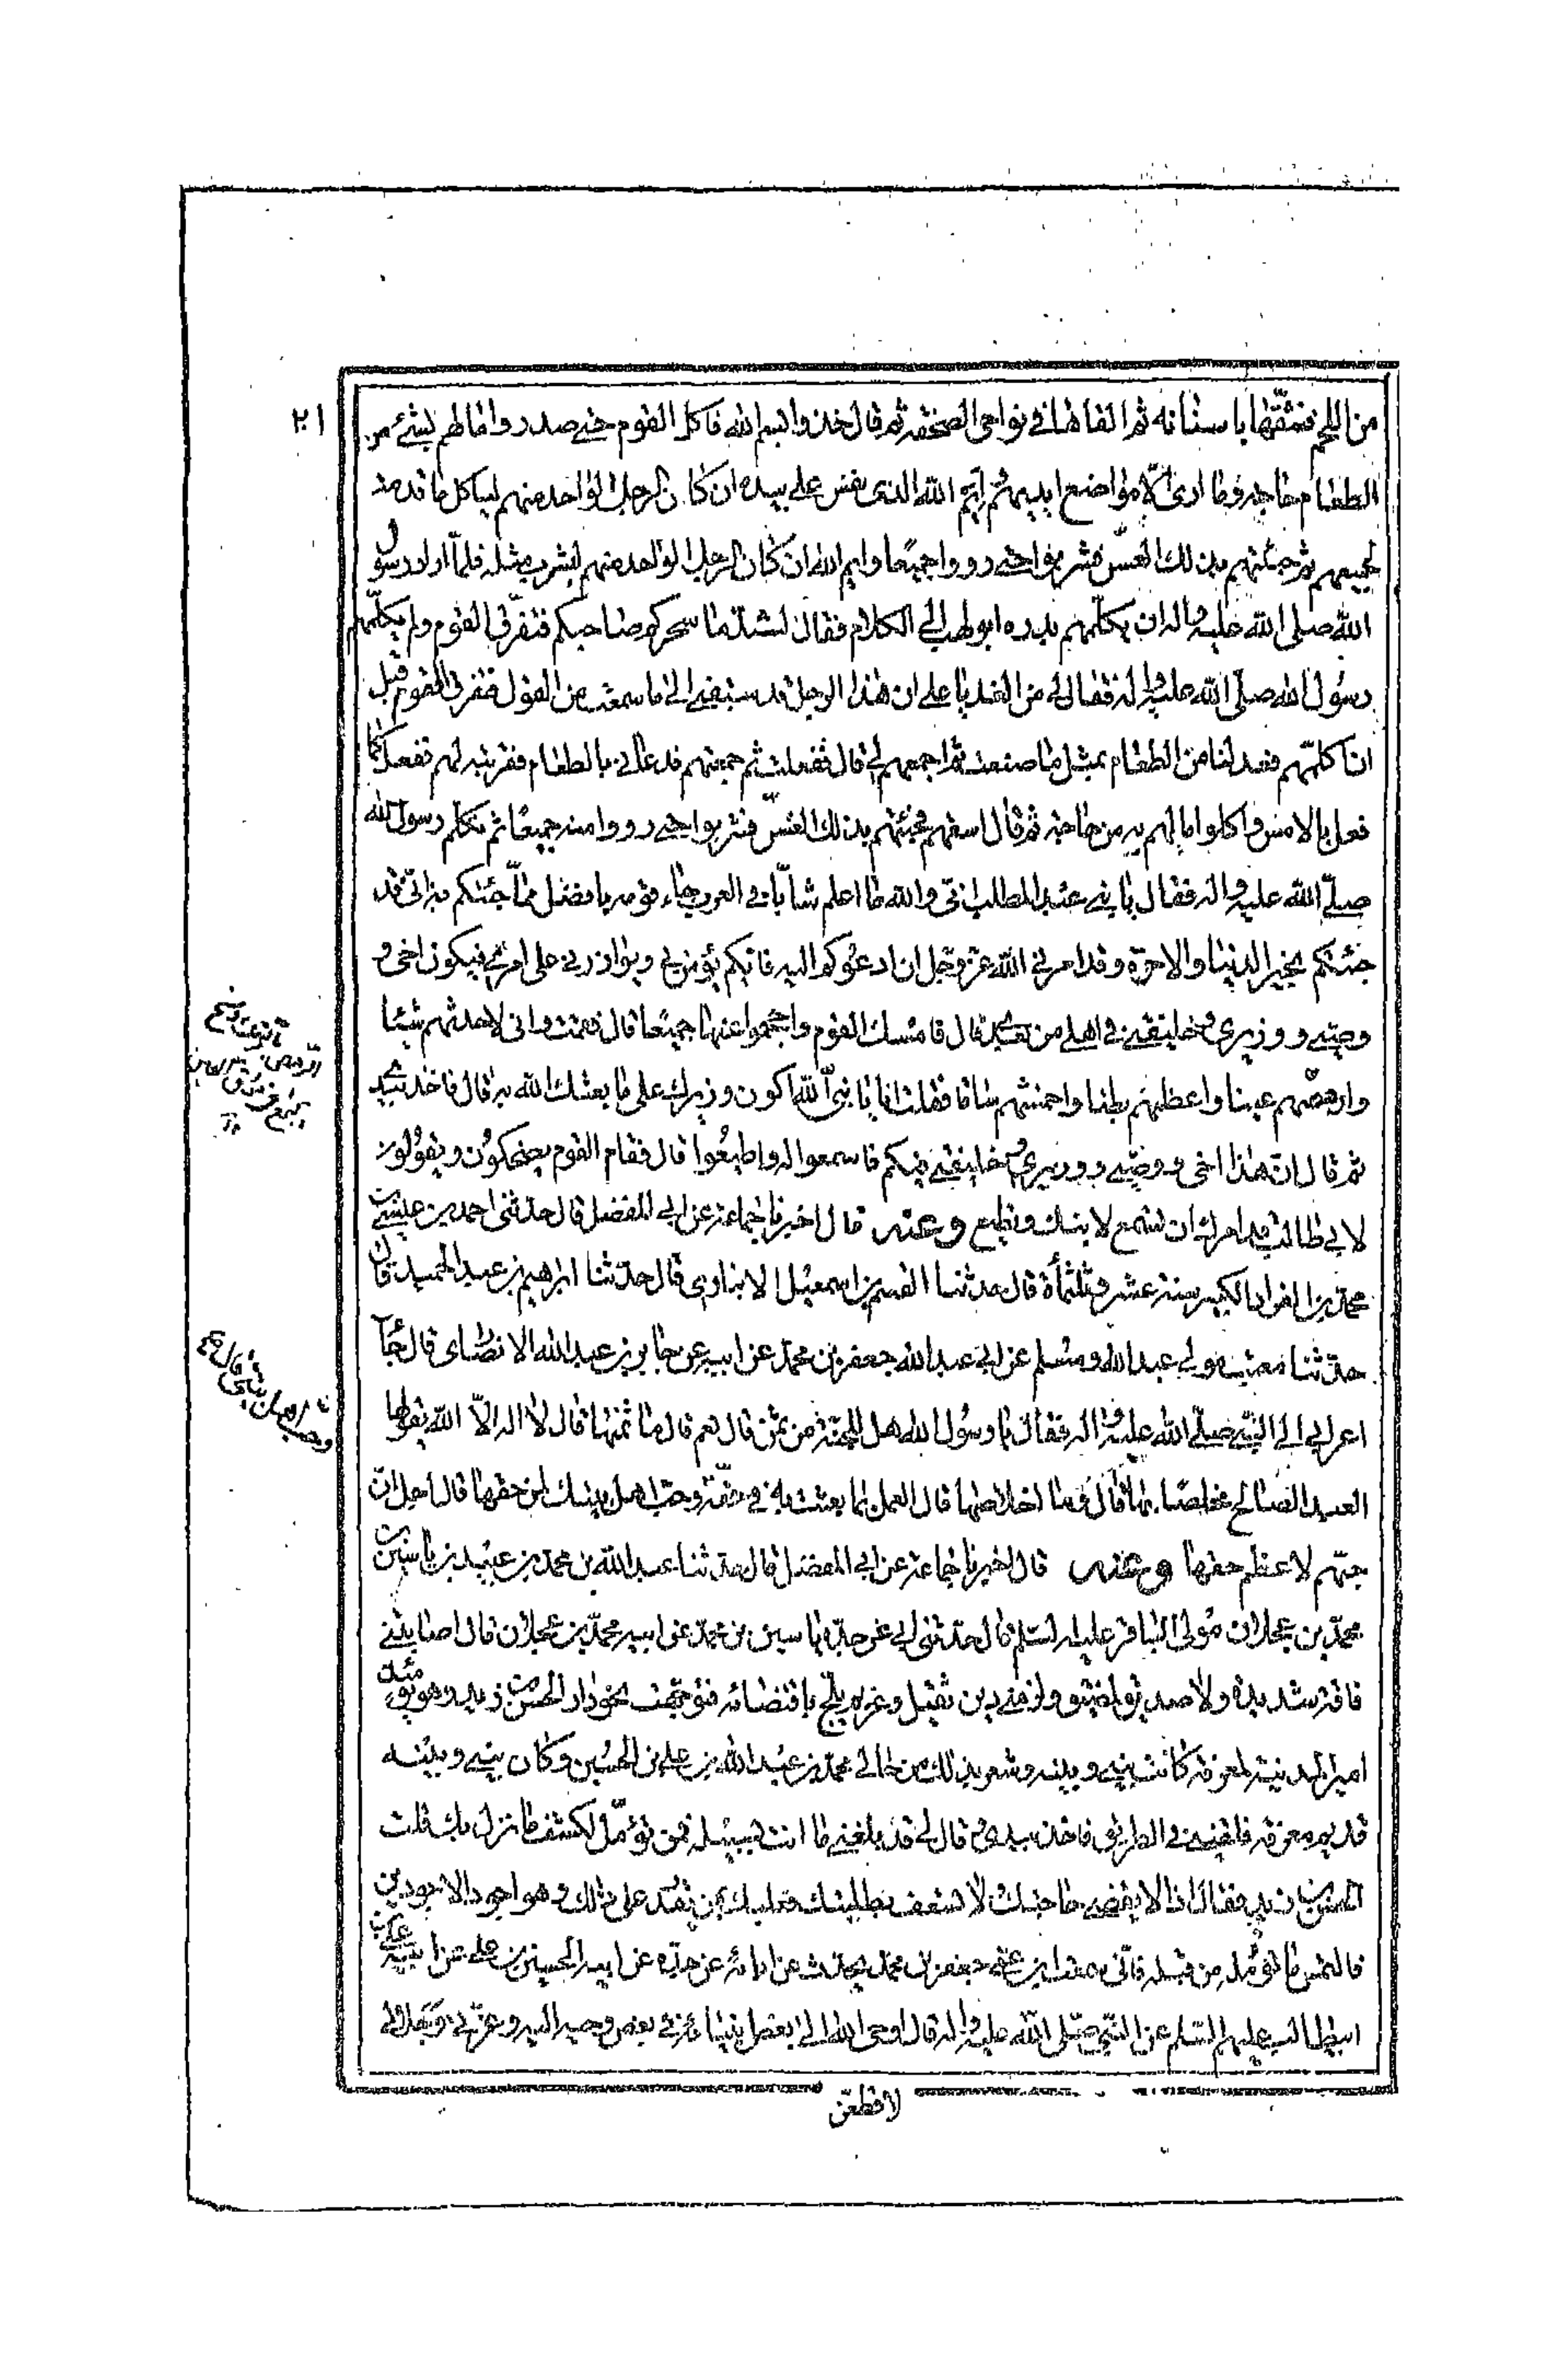 ٢١
من اللحم فنتّفها باسنانه ثم القاها في نواحى الصحفة ثم قال خذوا بسم الله فاكل القوم حتى صدروا ما لهم بشئ من
الطعام حاجة وما ارى الا مواضع ايديهم وايم الله الذى نفس على بيده ان كان الرجل الواحد منهم لياكل ما قدمت
لجميعهم ثم جئتهم بذلك العسّ فشربوا حتى رووا جميعا وايم الله ان كان الرجل الواحد منهم ليشرب مثله فلمّا اراد رسول
الله صلى الله عليه واله ان يكلّمهم بدره ابو لهب الى الكلام فقال لشدّ ما سحركم صاحبكم فتفرّق القوم ولم يكلّمهم
رسول الله صلّى الله عليه واله فقال لى من الغد يا على ان هذا الرجل قد سبقنى الى ما سمعت من القول فتفرق القوم قبل
ان اكلّمهم فعد لنا من الطعام بمثل ما صنعت ثم اجمعهم لى قال ففعلت ثم جمعتهم فدعانى بالطعام فقربته لهم ففعل كما
فعل بالامس فاكلوا ما لهم به من حاجة ثم قال اسقهم فجئتهم بذلك العسّ فشربوا حتى رووا منه جميعا ثم تكلم رسول الله
صلّى الله عليه واله فقال يا بنى عبد المطلب انى والله ما اعلم شابّا فى العرب جاء قومه بافضل ممّا جئتكم به انّى قد
جئتكم بخير الدنيا والاخرة وقد امرنى الله عزّ وجل ان ادعوكم اليه فايّكم يؤمن بى ويوازرنى على امرى فيكون اخى و
وصيى ووزيرى وخليفتى فى اهلى من بعدى قال فامسك القوم واحجموا عنها جميعا قال فقمت وانى لاحدثهم سنّا
وارمصهم عينا واعظمهم بطنا واحمشهم ساقا فقلت انا يا نبىّ الله اكون وزيرك على ما بعثك الله به قال فاخذ بيدى
ثم قال ان هذا اخى ووصيى ووزيرى وخليفتى فيكم فاسمعوا له واطيعوا قال فقام القوم يضحكون ويقولون
لابى طالب قد امرك ان تسمع لابنك وتطيع وعنه قال اخبرنا جماعة عن ابى المفضل قال حدثنى احمد بن عيسى بن
محمد بن الفرا الكبير سنة عشر وثلثمأة قال حدثنا القسم بن اسمعيل الانبارى قال حدّثنا ابرهيم بن عبد الحميد قال
حدّثنا معتب مولى عبد الله ومسلم عن ابى عبد الله جعفر بن محمد عن ابيه عن جابر بن عبد الله الانصارى قال جاء
اعرابى الى النبى صلّى الله عليه واله فقال يا رسول الله هل للجنّة من ثمن قال نعم قال ما ثمنها قال لا اله الاّ الله يقولها
العبد الصالح مخلصا بها قال وما اخلاصها قال العمل بما بعثت به فى حقّه وحبّ اهل بيتك لمن حقها قال اجل انّ
حبّهم لاعظم حقها وعنه قال اخبرنا جماعة عن ابى المفضل قال حدثنا عبد الله بن محمد بن عبيد بن ياسين بن
محمد بن عجلان مولى الباقر عليه السلم قال حدّثنى ابى عن جدّه ياسين بن محمد عن ابيه محمد بن عجلان قال اصابتنى
فاقة شديدة ولا صديق لمضيق ولزمنى دين ثقيل وغريم يلجّ باقتضائه فتوجّهت نحو دار الحسن بن زيد وهو يومئذ
امير المدينة لمعرفة كانت بينى وبينه وشعر بذلك من حالى محمد بن عبد الله بن على بن الحسين وكان بينى وبينه
قديم معرفة فلقينى فى الطريق فاخذ بيدى وقال لى قد بلغنى ما انت بسبيله فمن تؤمّل لكشف ما نزل بك قلت
الحسن بن زيد فقال اذا لا يقضى حاجتك ولا تسعف بطلبتك فعليك بمن يقدر على ذلك وهو اجود الاجودين
فالتمس ما تؤمله من قبله فانّى سمعت ابن عمى جعفر بن محمد يحدث عن ابائه عن جدّه عن ابيه الحسين بن على عن ابيه على بن
ابيطالب عليهم السلم عن النبى صلّى الله عليه واله قال اوحى الله الى بعض انبيائه فى بعض وحيه اليه وعزّتى وجلالى
لاقطعنّ